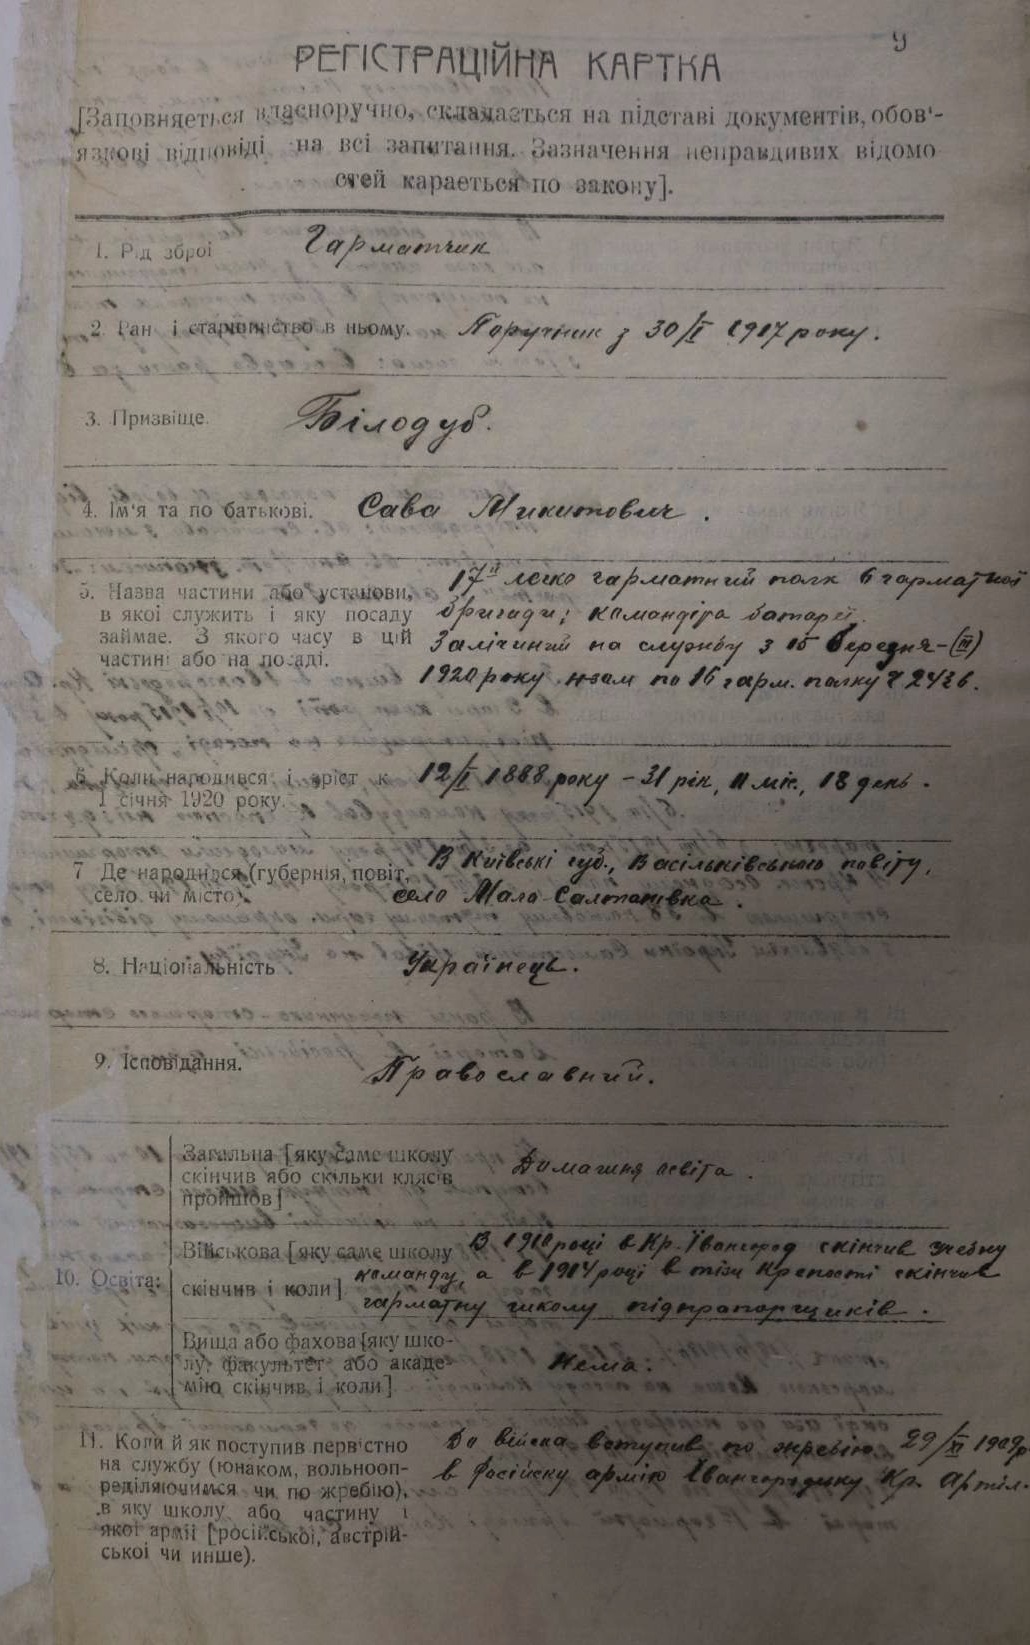 9
РЕГІСТРАЦІЙНА КАРТКА
[Заповняеться власноручно, складаеться на підставі документів, обов'-
язкові відповіді на всі запитання. Зазначення неправдивих відомо
стей караеться по закону].
1. Рід зброі Гарматчик
2. Ранґ і старшинство в ньому. Поручник з 30/І 1917 року.
3. Призвіще. Білодуб.
4. Ім'я та по батькові. Сава Микитович.
5. Назва частини або установи, 17й легко гарматний полк 6 гарматноі
в якоі служить і яку посаду бригади; командіра батареї.
займае. З якого часу в цій Залічиний на службу з 15 березня-(ІІІ)
частині або на посаді. 1920 року наказ по 16 гарм. полку ч 24 §6.
6. Коли народився і зріст к 12/І 1888 року - 31 рік, 11 міс., 18 день.
1 січня 1920 року.
7 Де народився (губернія, повіт, В Київські губ., Васільківського повіту,
село чи місто). село Мала-Салтанівка.
8. Національність Українець.
9. Ісповідання. Православний.
10. Освіта:
Загальна [яку саме школу Домашня освіта.
скінчив або скільки клясів
пройшов]
Військова [яку саме школу В 1910 році в Кр. Івангород скінчив учебну
скінчив і коли] команду, а в 1914 році в тіэи крепості скінчив
гарматну школу підпрапорщиків.
Вища або фахова [яку шко-
лу, факультет або акаде- Нема.
мію скінчив і коли]
11. Коли й як поступив первістно До війска вступив по жребію 29/ХІ 1909р
на службу (юнаком, вольнооп- в Російску армію Івангородську Кр. Артіл.
реділяючимся чи по жребію),
в яку школу або частину і
якоі арміі [російськоі, австрій-
ськоі чи инше).